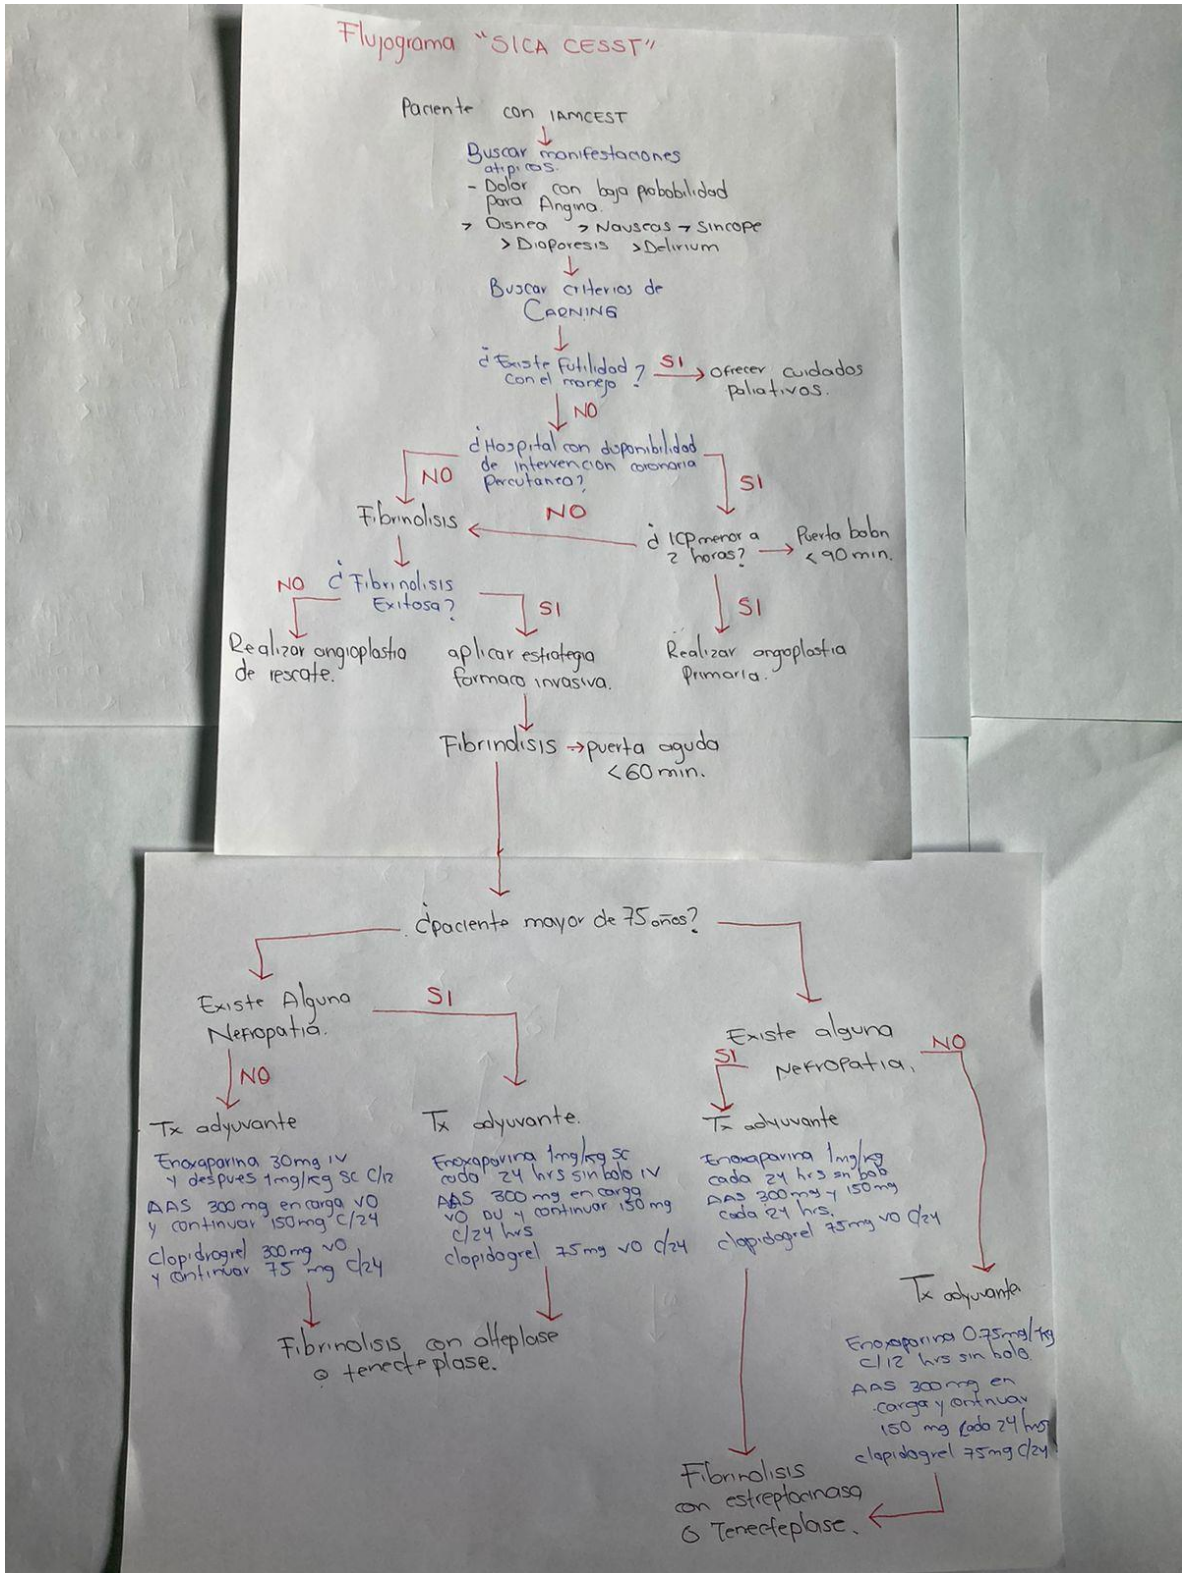 Flujograma "SICA CESST"
Paciente con IAMCEST
Buscar manifestaciones
atipicas.
- Dolor con baja probabilidad
para Angina.
> Disnea > Nauseas → Sincope
> Diaforesis > Delirium
Buscar criterios de
CARNING
¿Existe Futilidad
con el manejo?
SI
ofrecer cuidados
paliativos.
NO
¿Hospital con disponibilidad
de intervencion coronaria
percutanea?
NO
SI
Fibrinolisis
NO
¿ICP menor a
2 horas?
Puerta balon
<90 min.
NO
¿Fibrinolisis
Exitosa?
SI
SI
Realizar angioplastia
de rescate.
aplicar estrategia
farmaco invasiva.
Realizar angoplastia
Primaria.
Fibrinolisis → puerta aguda
<60 min.
¿paciente mayor de 75 años?
Existe Alguna
Nefropatia.
SI
NO
Existe alguna
Nefropatia.
SI
NO
Tx adyuvante
Enoxaparina 30mg IV
y despues 1mg/kg SC C/12
AAS 300 mg en carga VO
y continuar 150mg C/24
Clopidrogrel 300mg VO
y continuar 75 mg C/24
Tx adyuvante.
Enoxaparina 1mg/kg SC
cada 24 hrs sin bolo IV
AAS 300 mg en carga
VO DU y continuar 150 mg
C/24 hrs
clopidogrel 75mg VO C/24
Tx adyuvante
Enoxaparina 1mg/kg
cada 24 hrs sin bolo
AAS 300mg y 150mg
cada 24 hrs.
clopidogrel 75mg VO C/24
Fibrinolisis con alteplase
o tenecteplase.
Tx adyuvante
Enoxaparina 0.75mg/kg
C/12 hrs sin bolo
AAS 300mg en
carga y continuar
150 mg cada 24 hrs
clopidogrel 75mg C/24
Fibrinolisis
con estreptocinasa
O Tenecteplase.